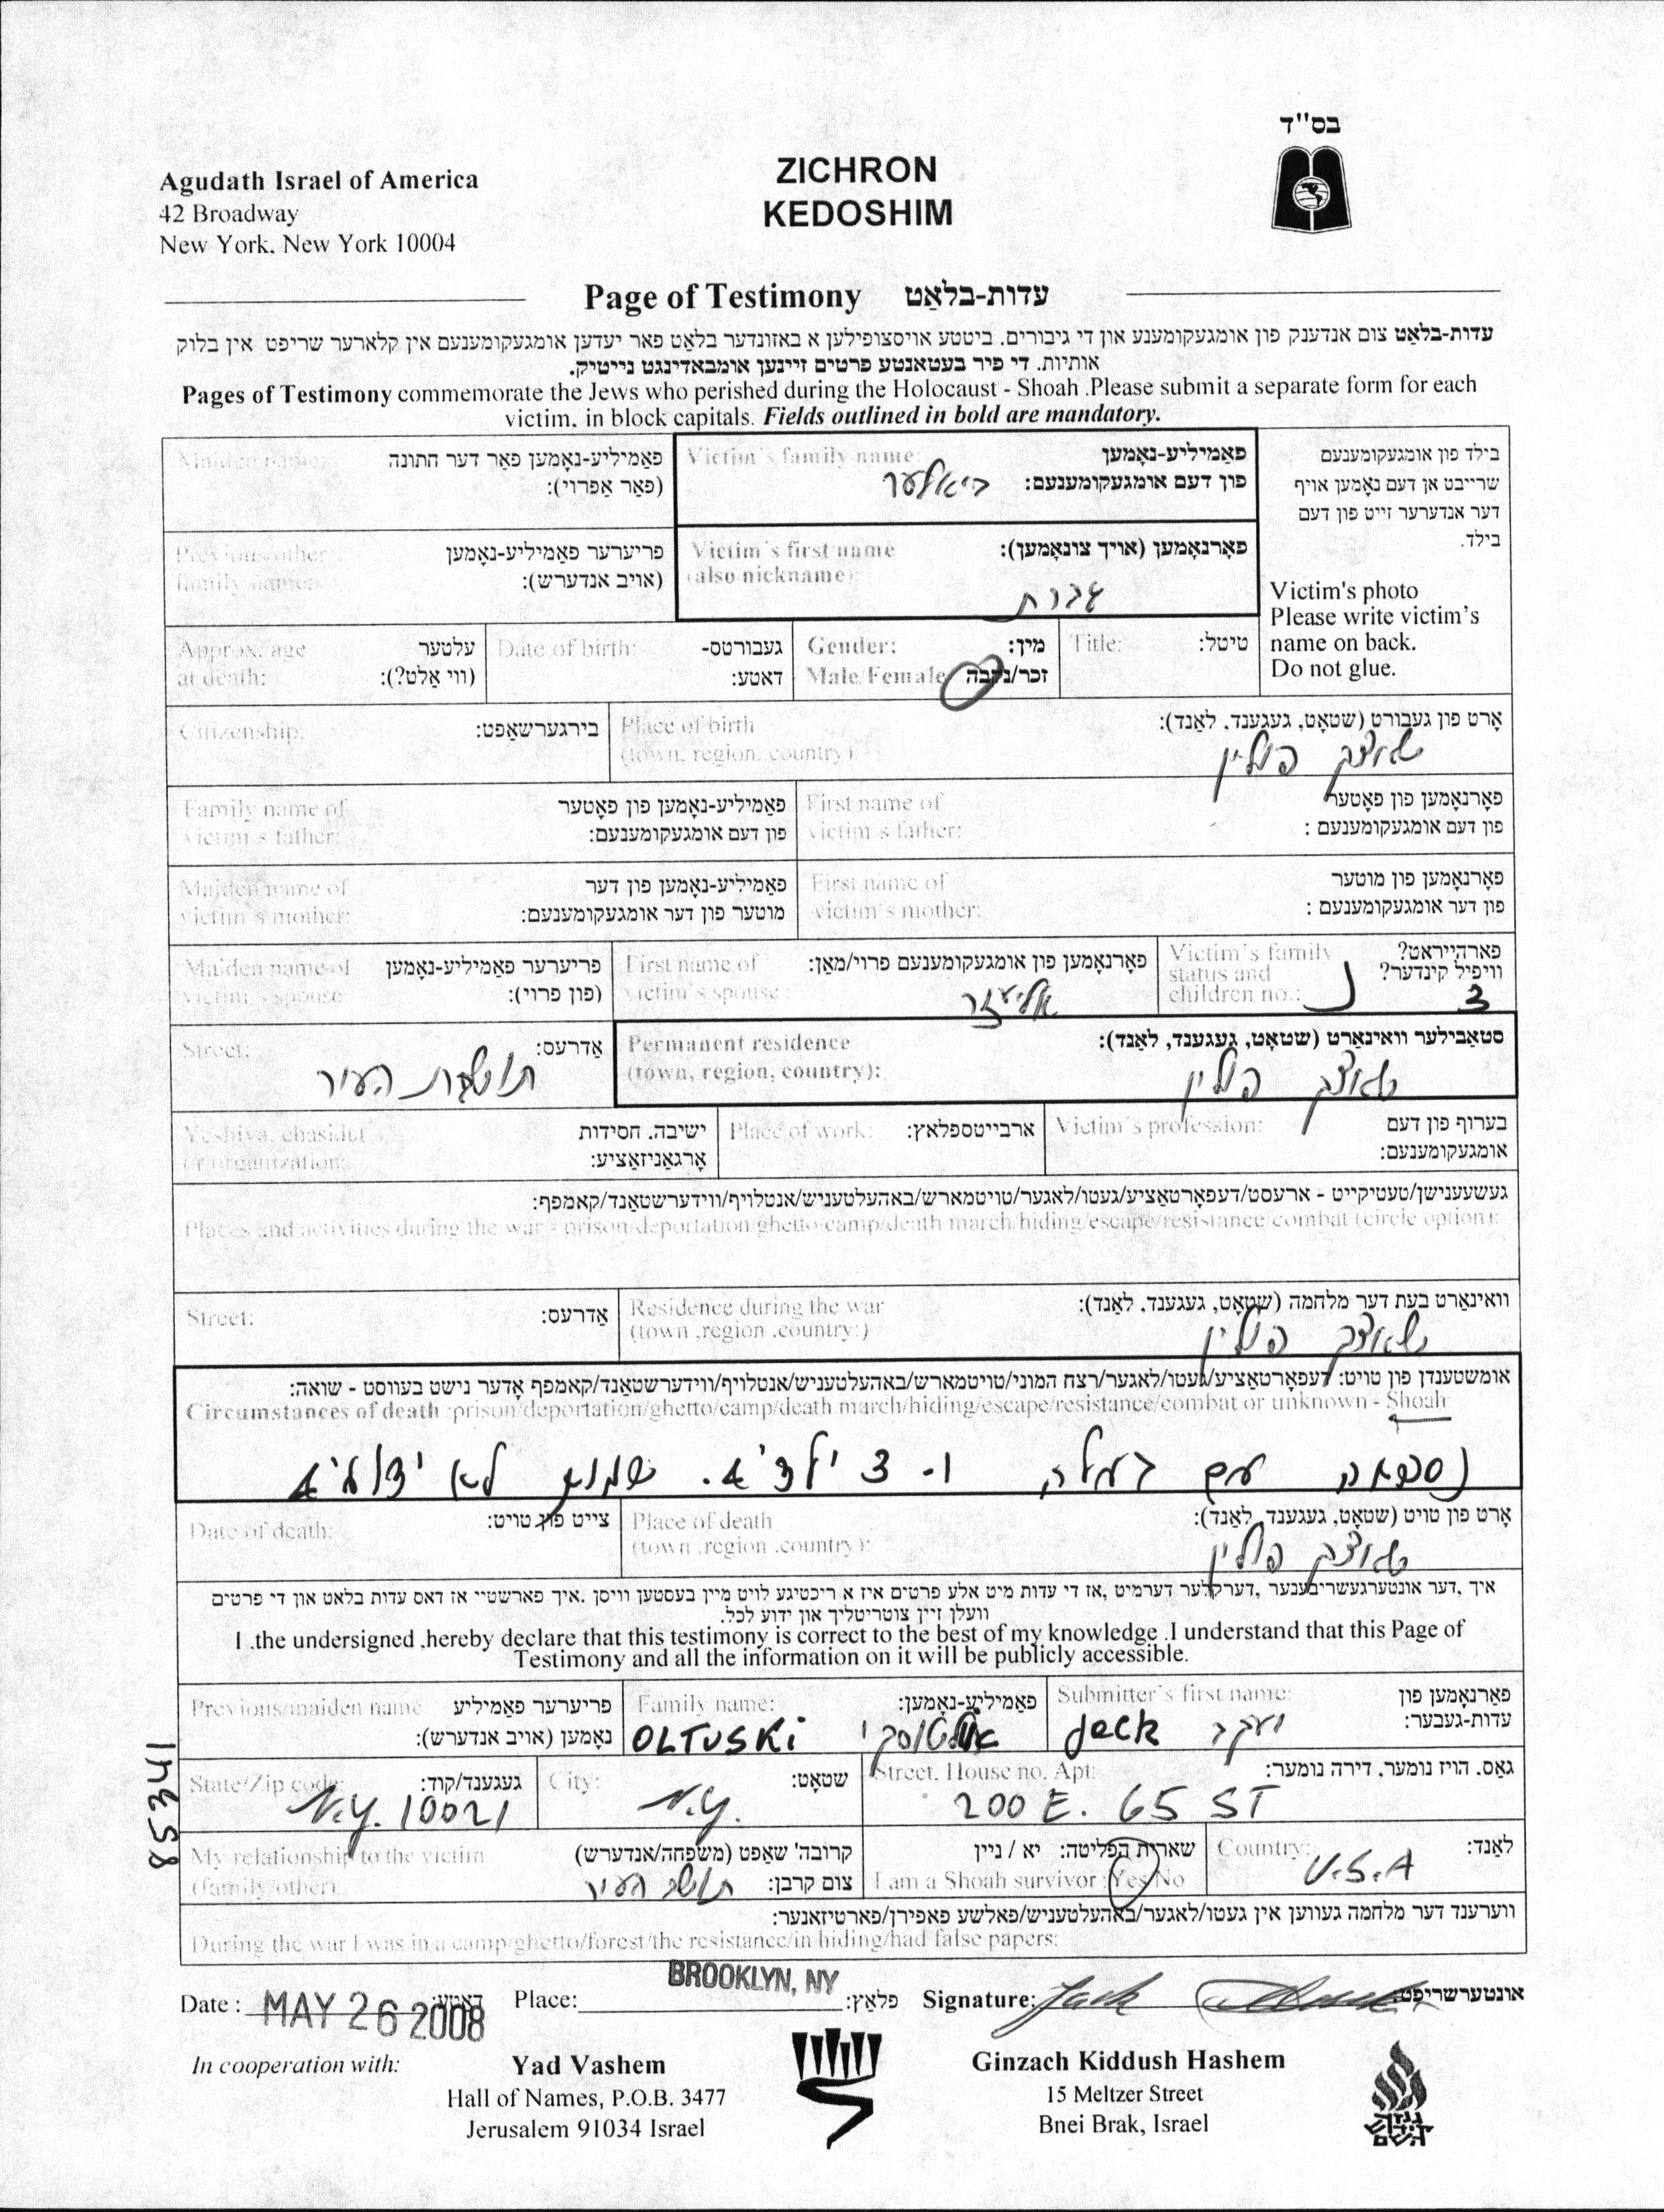 בס"ד
Agudath Israel of America
42 Broadway
New York, New York 10004
ZICHRON
KEDOSHIM
Page of Testimony עדות-בלאַט
עדות-בלאַט צום אנדענק פון אומגעקומענע און די גיבורים. ביטטע אויסצופילען א באזונדער בלאַט פאר יעדען אומגעקומענעם אין קלארער שריפט אין בלוק
אותיות. די פיר בעטאנטע פרטים זיינען אומבאדינגט נייטיק.
Pages of Testimony commemorate the Jews who perished during the Holocaust - Shoah .Please submit a separate form for each
victim, in block capitals. Fields outlined in bold are mandatory.
בילד פון אומגעקומענעם
שרייבט אן דעם נאָמען אויף
דער אנדערער זייט פון דעם
בילד.
Victim's photo
Please write victim's
name on back.
Do not glue.
Victim's family name: פאַמיליע-נאָמען
פון דעם אומגעקומענעם: ביאלער
Maiden name: פאַמיליע-נאָמען פאַר דער חתונה
(פאַר אַפרוי):
Victim's first name פאָרנאָמען (אויך צונאָמען):
(also nickname):
Previous/other פריערער פאַמיליע-נאָמען
family name: (אויב אנדערש):
Title: טיטל:
Gender: מין:
Male/Female זכר/נקבה
Date of birth: געבורטס-
דאטע:
Approx. age עלטער
at death: (ווי אַלט?):
Place of birth אָרט פון געבורט (שטאָט, געגענד, לאַנד):
(town, region, country) פולין
Citizenship: בירגערשאַפט:
First name of פאָרנאָמען פון פאָטער
victim's father: פון דעם אומגעקומענעם :
Family name of פאַמיליע-נאָמען פון פאָטער
victim's father: פון דעם אומגעקומענעם:
First name of פאָרנאָמען פון מוטער
victim's mother: פון דער אומגעקומענעם :
Maiden name of פאַמיליע-נאָמען פון דער
victim's mother: מוטער פון דער אומגעקומענעם:
Victim's family פארהייראט?
status and וויפיל קינדער?
children no.: נ 3
First name of פאָרנאָמען פון אומגעקומענעם פרוי/מאַן:
victim's spouse: אליעזר
Maiden name of פריערער פאַמיליע-נאָמען
victim's spouse (פון פרוי):
Permanent residence סטאַבילער וואוינאַרט (שטאָט, געגענד, לאַנד):
(town, region, country): פולין
Street: אַדרעס:
תושבת העיר
Victim's profession: בערוף פון דעם
אומגעקומענעם:
Place of work: ארבייטספלאץ:
Yeshiva, chasidut ישיבה, חסידות
or organization: אָרגאַניזאַציע:
געשעענישן/טעטיקייט - ארעסט/דעפאָרטאַציע/געטו/לאגער/טויטמארש/באהעלטעניש/אנטלויף/ווידערשטאַנד/קאמפף:
Places and activities during the war - prison/deportation/ghetto/camp/death march/hiding/escape/resistance/combat (circle option):
Residence during the war וואוינאַרט בעת דער מלחמה (שטאָט, געגענד, לאַנד):
(town ,region .country:) פולין
Street: אַדרעס:
אומשטענדן פון טויט: דעפאָרטאַציע/געטו/לאגער/רצח המוני/טויטמארש/באהעלטעניש/אנטלויף/ווידערשטאַנד/קאמפף אָדער נישט בעוווסט - שואה:
Circumstances of death :prison/deportation/ghetto/camp/death march/hiding/escape/resistance/combat or unknown - Shoah
נספתה עם בעלה ו- 3 ילדים. לא ידועים
Place of death אָרט פון טויט (שטאָט, געגענד, לאַנד):
(town .region .country): פולין
Date of death: צייט פון טויט:
איך ,דער אונטערגעשריבענער ,דערקלער דערמיט ,אז די עדות מיט אלע פרטים איז א ריכטיגע לויט מיין בעסטען וויסן .איך פארשטיי אז דאס עדות בלאט און די פרטים
וועלן זיין צוטריטליך און ידוע לכל.
I .the undersigned ,hereby declare that this testimony is correct to the best of my knowledge .I understand that this Page of
Testimony and all the information on it will be publicly accessible.
Submitter's first name: פאָרנאָמען פון
עדות-געבער: יעקב Jack
Family name: פאַמיליע-נאָמען:
OLTUSKi
Previous/maiden name פריערער פאַמיליע
נאָמען (אויב אנדערש):
Street. House no. Apt: גאס. הויז נומער, דירה נומער:
200 E. 65 ST
City: שטאָט:
N.Y.
State/Zip code: געגענד/קוד:
N.Y. 10021
Country: לאַנד:
U.S.A
שארית הפליטה: יא / ניין
I am a Shoah survivor :Yes/No
My relationship to the victim קרובה' שאַפט (משפחה/אנדערש)
(family/other) צום קרבן: תושב העיר
ווערענד דער מלחמה געווען אין געטו/לאגער/באהעלטעניש/פאלשע פאפירן/פארטיזאנער:
During the war I was in a camp/ghetto/forest/the resistance/in hiding/had false papers:
Date : MAY 26 2008 דאַטע: Place: BROOKLYN, NY פלאַץ: Signature: Jack אונטערשריפט:
In cooperation with:
Yad Vashem
Hall of Names, P.O.B. 3477
Jerusalem 91034 Israel
Ginzach Kiddush Hashem
15 Meltzer Street
Bnei Brak, Israel
גנזך
קידוש
השם